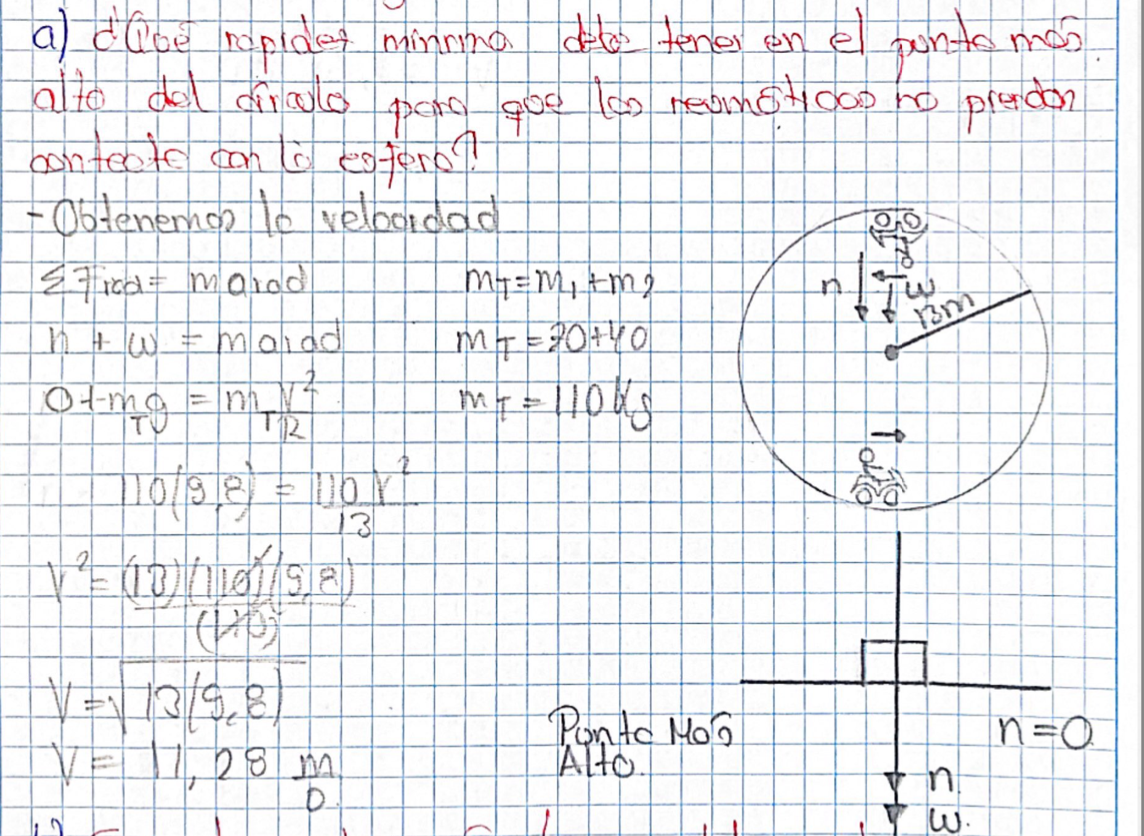 a) ¿Qué rapidez mínima debe tener en el punto más
alto del círculo para que los neumáticos no pierdan
contacto con la esfera?
-Obtenemos la velocidad
ΣFrad = marad
n + w = marad
0+mTg = mT V²/R
110(9,8) = 110 V²/13
V² = (13)(110)(9,8)/(110)
V = √13(9,8)
V = 11,28 m/s
mT = m1 + m2
mT = 70+40
mT = 110 Kg
n
w
13m
Punto Más
Alto.
n=0
n
w.